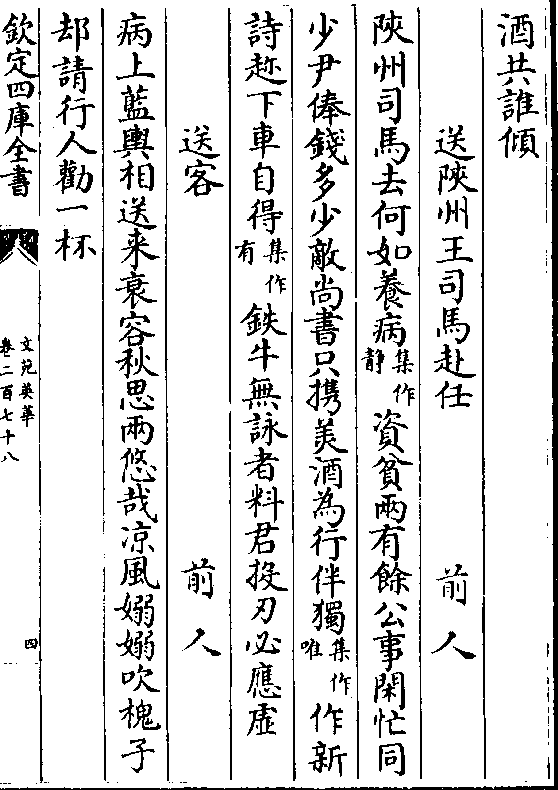 酒共誰傾
送陜州王司馬赴任 前人
陜州司馬去何如養病集作靜資貧兩有餘公事閑忙同
少尹俸錢多少敵尚書只携美酒為行伴獨集作唯作新
詩趂下車自得集作有鉄牛無詠者料君投刃必應虛
送客 前人
病上藍輿相送来衰容秋思兩悠哉凉風嫋嫋吹槐子
却請行人勸一杯
欽定四庫全書
文苑英華
卷二百七十八
四